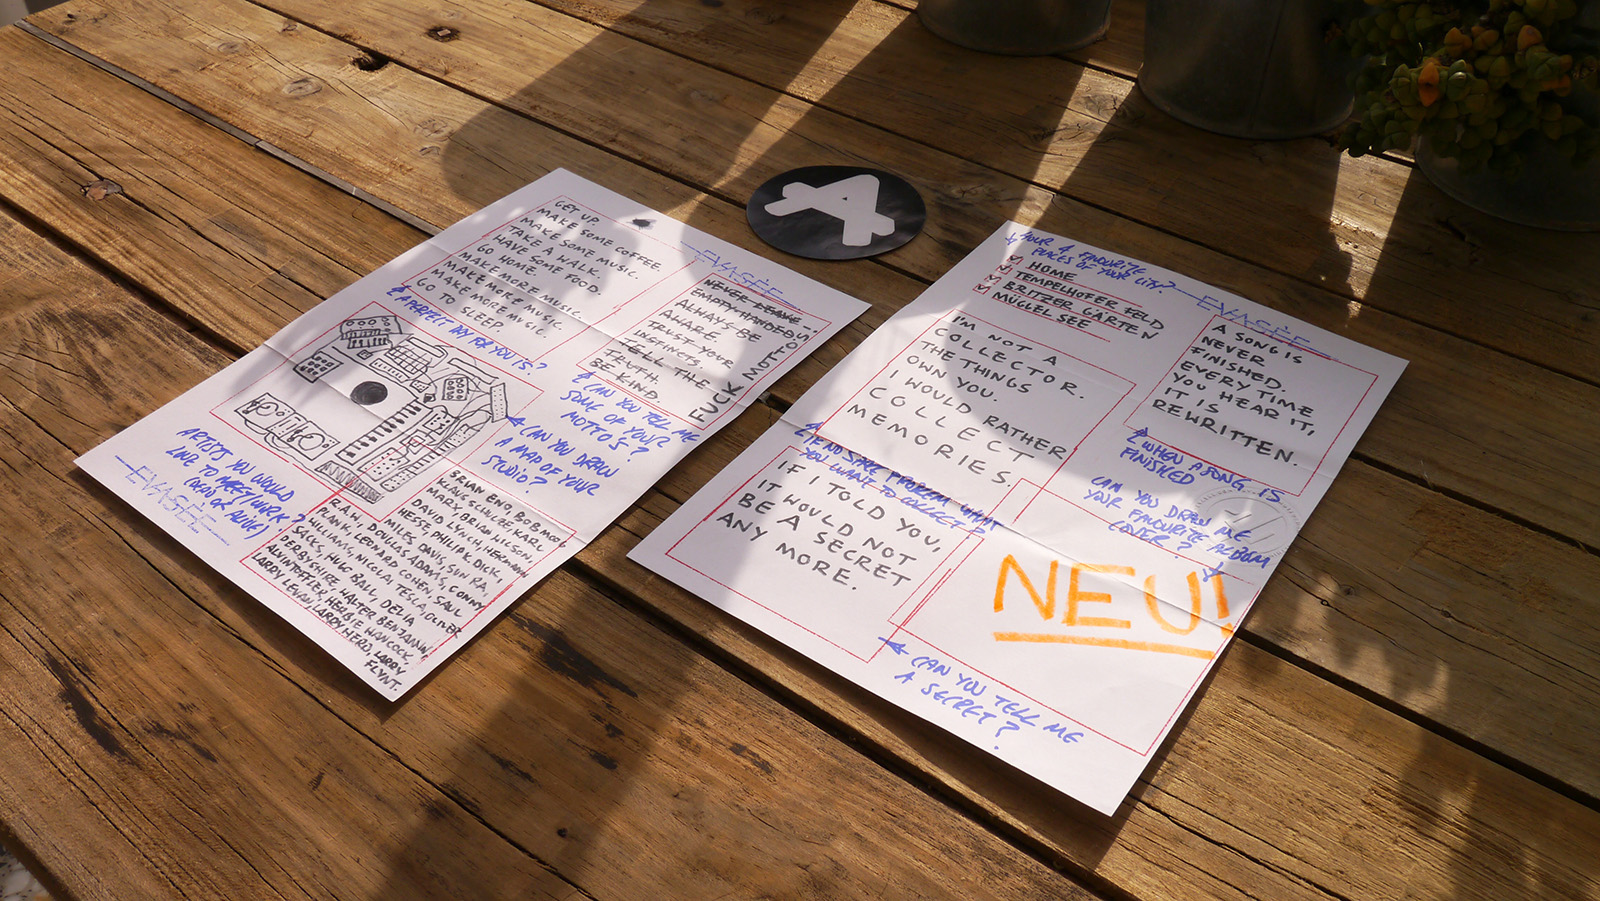 GET UP.
MAKE SOME COFFEE
MAKE SOME MUSIC.
TAKE A WALK.
HAVE SOME FOOD.
GO HOME.
MAKE MORE MUSIC.
MAKE MORE MUSIC.
MAKE MORE MUSIC.
GO TO SLEEP.
A PERFECT DAY FOR YOU IS?
EVASÉE
NEVER LEAVE
EMPTY HANDED.
ALWAYS BE
AWARE.
TRUST YOUR
INSTINCTS.
TELL THE
TRUTH.
BE KIND.
FUCK MOTTOS
CAN YOU TELL ME
SOME OF YOUR
MOTTO'S?
CAN YOU DRAW
A MAP OF YOUR
STUDIO?
ARTISTS YOU WOULD
LIKE TO MEET/WORK?
(DEAD OR ALIVE)
EVASÉE
BRIAN ENO, BOB MOOG
KLAUS SCHULZE, KARL
MARX, BRIAN WILSON,
DAVID LYNCH, HERMANN
HESSE, PHILIP K DICK,
MILES DAVIS, SUN RA,
R.A.W, DOUGLAS ADAMS, CONNY
PLANK, LEONARD COHEN, SAUL
WILLIAMS, NICOLAI TESLA, OLIVER
SACKS, HUGO BALL, DELIA
DERBYSHIRE, WALTER BENJAMIN
ALVIN TOFFLER, HERBIE HANCOCK,
LARRY LEVAN, LARRY HERD, LARRY
FLYNT.
YOUR 4 FAVOURITE
PLACES OF YOUR CITY?
EVASÉE
HOME
TEMPELHOFER FELD
BRITZER GARTEN
MÜGGELSEE
I'M NOT A
COLLECTOR.
THE THINGS
OWN YOU.
I WOULD RATHER
COLLECT
MEMORIES.
IF NO SPACE PROBLEM WHAT
YOU WANT TO COLLECT?
A SONG IS
NEVER
FINISHED.
EVERY TIME
YOU HEAR IT,
IT IS
REWRITTEN.
WHEN A SONG IS
FINISHED
CAN YOU DRAW ME
YOUR FAVOURITE ALBUM
COVER?
IF I TOLD YOU,
IT WOULD NOT
BE A SECRET
ANY MORE.
NEU!
CAN YOU TELL ME
A SECRET?